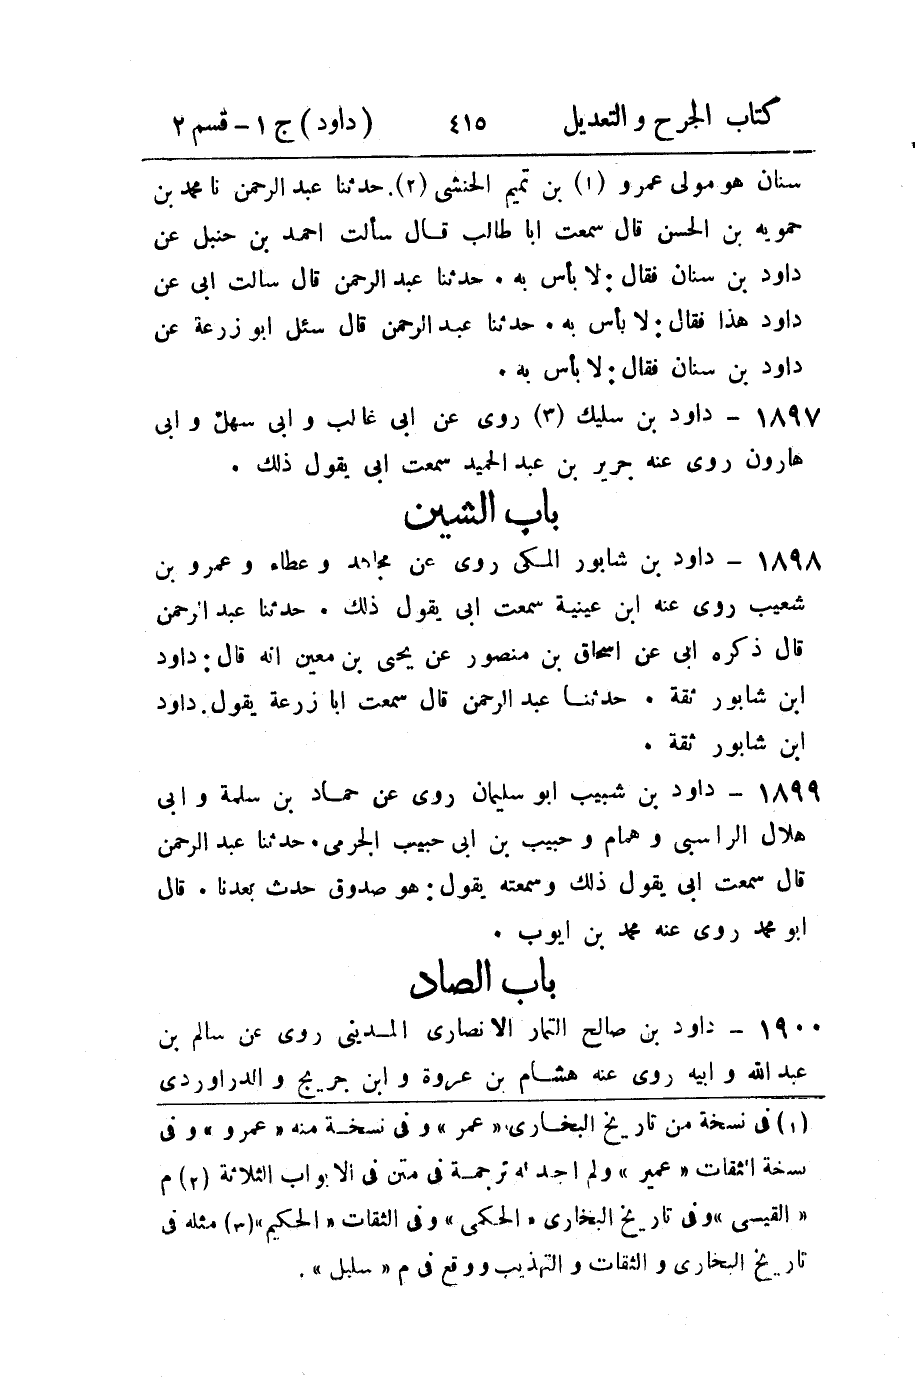 كتاب الجرح والتعديل ٤١٥ (داود) ج ١ - قسم ٢
سنان هو مولى عمرو (١) بن تميم الحنشى (٢). حدثنا عبد الرحمن نا محمد بن
حمويه بن الحسن قال سمعت ابا طالب قال سألت احمد بن حنبل عن
داود بن سنان فقال: لا بأس به . حدثنا عبد الرحمن قال سالت ابى عن
داود هذا فقال: لا بأس به . حدثنا عبد الرحمن قال سئل ابو زرعة عن
داود بن سنان فقال: لا بأس به .
١٨٩٧ - داود بن سليك (٣) روى عن ابى غالب و ابى سهل و ابى
هارون روى عنه جرير بن عبد الحميد سمعت ابى يقول ذلك .
باب الشين
١٨٩٨ - داود بن شابور المكى روى عن مجاهد و عطاء و عمرو بن
شعيب روى عنه ابن عيينة سمعت ابى يقول ذلك . حدثنا عبد الرحمن
قال ذكره ابى عن اسحاق بن منصور عن يحيى بن معين انه قال: داود
ابن شابور ثقة . حدثنا عبد الرحمن قال سمعت ابا زرعة يقول. داود
ابن شابور ثقة .
١٨٩٩ - داود بن شبيب ابو سليمان روى عن حماد بن سلمة و ابى
هلال الراسبى و همام و حبيب بن ابى حبيب الجرمى . حدثنا عبد الرحمن
قال سمعت ابى يقول ذلك وسمعته يقول: هو صدوق حدث بعدنا . قال
ابو محمد روى عنه محمد بن ايوب .
باب الصاد
١٩٠٠ - داود بن صالح التمار الانصارى المدينى روى عن سالم بن
عبد الله و ابيه روى عنه هشام بن عروة و ابن جريج و الدراوردى
(١) فى نسخة من تاريخ البخارى «عمر» و فى نسخة منه «عمرو» و فى
نسخة الثقات «عمير» ولم اجد له ترجمة فى متن فى الابواب الثلاثة (٢) م
«القيسى» وفى تاريخ البخارى «الحكمى» وفى الثقات «الحكيم» (٣) مثله فى
تاريخ البخارى و الثقات و التهذيب ووقع فى م «سليل» .